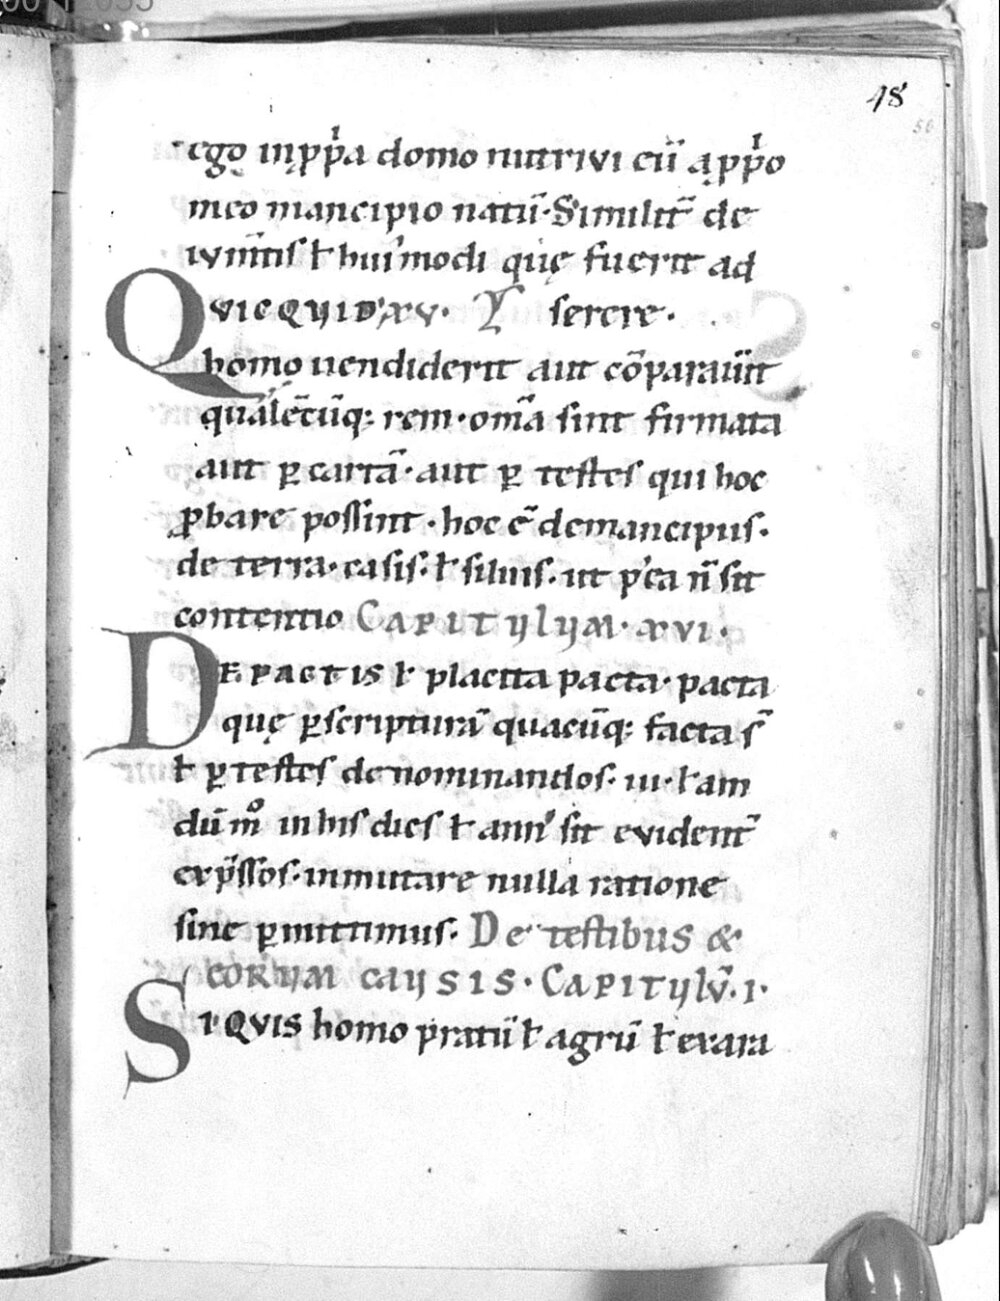 48
56
ego inp̱p̍a domo nutrivi cū̄ a p̱p̍o
meo mancipio natū̄· Similit̄ de
ivm̄tis ł hui᾽modi quę fuerit ad
QVICQVID XV· serere·
homo uendiderit aut cōparau̅it
qualēcūq: rem· om̄a sint firmata
aut ꝑ cartā· aut ꝑ testes qui hoc
ꝓbare possint· hoc ē de mancipiis·
de terra· casis· ł siluis· ut p᾽ea n̄ sit
contentio CAPITULUM· XVI·
DE PACTIS ł placita pacta· pacta
quę ꝑ scripturā quacūq: facta s̄
ł ꝑ testes denominandos· iii· ł am
dū mº in his dies ł ann᾽ sit evident̄
exp̄ssos· inmutare nulla ratione
sine ꝑmittimus· De testibus &
EORUM CAUSIS· CAPITULV̄· I·
SI QVIS homo pratū ł agrū ł exara